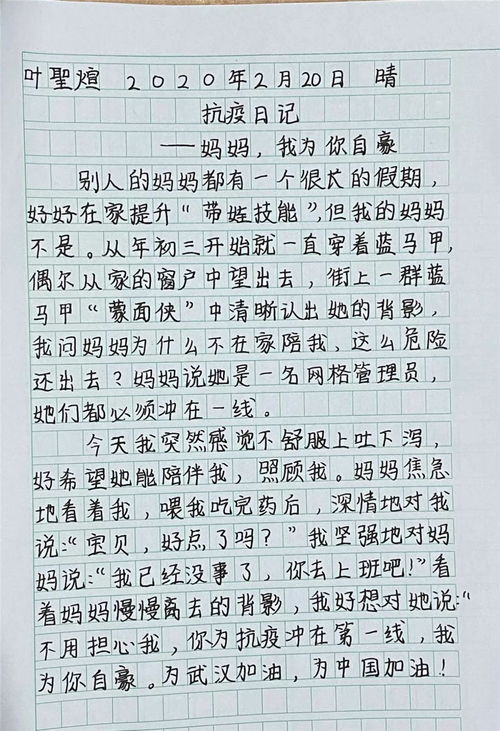 叶聖煊 2020年2月20日 晴
抗疫日记
——妈妈，我为你自豪
别人的妈妈都有一个很长的假期，
好好在家提升“带娃技能”，但我的妈妈
不是。从年初三开始就一直穿着蓝马甲，
偶尔从家的窗户中望出去，街上一群蓝
马甲“蒙面侠”中清晰认出她的背影，
我问妈妈为什么不在家陪我、这么危险
还出去？妈妈说她是一名网格管理员，
她们都必须冲在一线。
今天我突然感觉不舒服上吐下泻，
好希望她能陪伴我，照顾我。妈妈焦急
地看着我，喂我吃完药后，深情地对我
说：“宝贝，好点了吗？”我坚强地对妈
妈说：“我已经没事了，你去上班吧！”看
着妈妈慢慢离去的背影，我好想对她说：“
不用担心我，你为抗疫冲在第一线，我
为你自豪。为武汉加油，为中国加油！